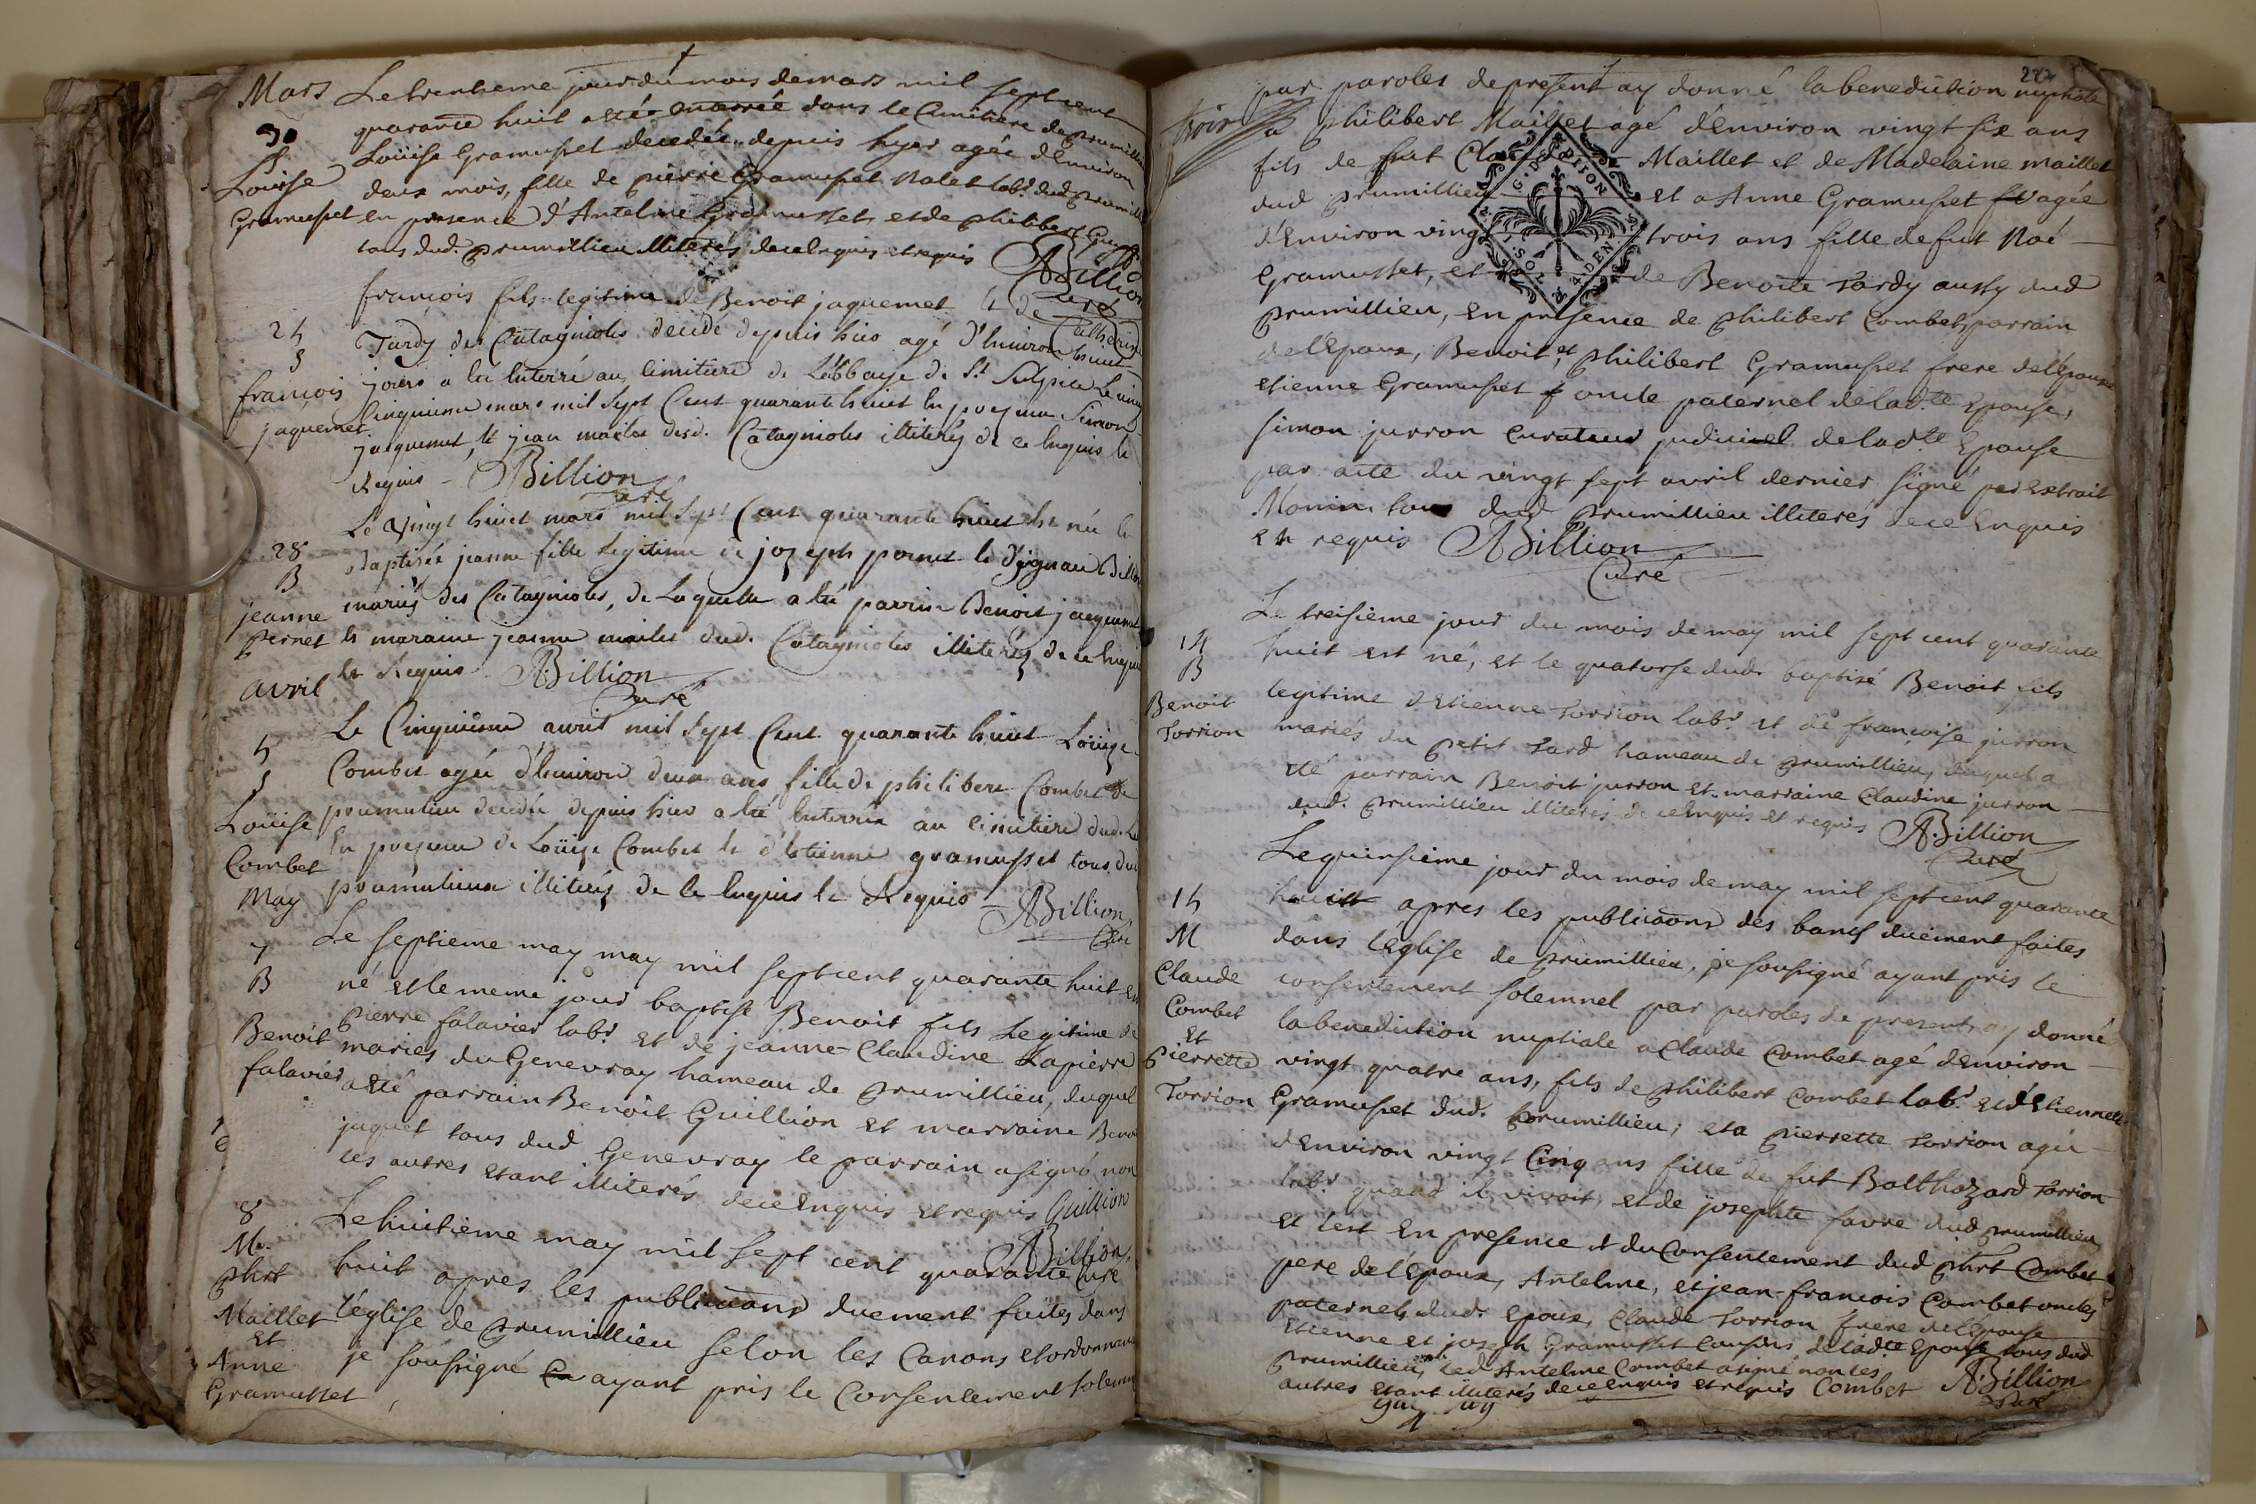 Mars
Le trentieme jour du mois de mars mil sept cent
30
quarante huit a été enterrée dans le Cimitiere de prumillieu
S
Loüise Gramusset decedée depuis hyer agée d'Environ
Loüise
deux mois, fille de pierre Gramusset Nolet labr. dud prumillieu
Gramusset
en presence d'Antelme Gramusset, et de philibert
tous dud. prumillieu illiterés de ce enquis et requis
ABillion
Curé
françois fils legitime de Benoit jaquemet et de Catherine
25
Tardy des Catagnioles decedé depuis hier agé d'Environ huit
S
jours a été Enterré au Cimitiere de L'abbaye de St. Sulpice Le vingt
françois
jaquemet
Cinquieme mars mil Sept Cent quarante huit En presence Simon
jaquemet, et jean mailet desd. Catagnioles illiterés de ce Enquis et
Requis - ABillion
curé
Le vingt huit mars mil Sept Cent quarante huit Est née et
28
baptisée jeanne fille Legitime de jozeph pernet et d'ysgnau Billion
B
jeanne
mariés des Catagnioles, de Laquelle a été parrin Benoit jaquemet
pernet
et maraine jeanne mailet dud. Catagnioles illiterés de ce Enquis
et Requis ABillion
Curé
avril
Le Cinquieme avril mil Sept Cent quarante huit Loüize
5
S
Combet agée d'Environ deux ans fille de philibert Combet de
Loüise
prumilieu decedée depuis hier a été Enterrée au cimitiere dud. Lieu
Combet
En presence de Loüize Combet et d'Etienne gramusset tous dud
prumilieu illiterés de ce Enquis et Requis ABillion
Curé
May
Le septieme may may mil sept cent quarante huit est
7
B
né et le meme jour baptisé Benoit fils Legitime de
Benoit
pierre falavier labr. et de jeanne Claudine Lapierre
falavier
mariés du Genevray hameau de prumillieu, duquel
a été parrain Benoit Guillion et marraine Benoi
juquet tous dud Genevray le parrain a signé non
les autres etant illiterés de ce enquis et requis Guillion
ABillion
Curé
8
M.
Le huitieme may mil sept cent quarante
phrt
huit apres les publicaons duement faites dans
Maillet
l'église de prumillieu selon les Canons et ordonnan
et
Anne
je soussigné ayant pris le Consentement solemn
Gramusset
par paroles de present ay donné la benediction nuptiale
a philibert Maillet agé d'Environ vingt six ans
fils de fut Claude Maillet et de Madelaine maillet
dud prumillieu et a Anne Gramusset agée
d'Environ vingt trois ans fille de fut Noé
Gramusset, et de Benoite Tardy aussy dud
prumillieu, En presence de philibert Combet parrain
de l'Epoux, Benoit et philibert Gramusset frere de l'Epouse
etienne Gramusset oncle paternel de ladte. Epouse,
simon jurron Curateur judiciel de ladte. Epouse
par acte du vingt sept avril dernier signé par Extrait
Monin tous dud prumillieu illiterés de ce Enquis
et requis ABillion
Curé
Le treisieme jour du mois de may mil sept cent quarante
14
B
huit est né, et le quatorse dud. baptisé Benoit fils
Benoit
Torrion
legitime d'Etienne Torrion labr. et de françoise jurron
mariés du petit Tard hameau de prumillieu, duquel a
été parrain Benoit jurron et marraine Claudine jurron
dud. prumillieu illiterés de ce enquis et requis ABillion
Curé
Le quinsieme jour du mois de may mil sept cent quarante
15
huit apres les publicaons des bancs duement faites
M
dans l'église de prumillieu, je soussigné ayant pris le
Claude
Combet
consentement solemnel par paroles de present, ay donné
Et
la benediction nuptiale a Claude Combet agé d'Environ
pierrette
vingt quatre ans, fils de philibert Combet labr. et d'Etiennete
Torrion
Gramusset dud. prumillieu; et a pierrette Torrion agée
d'Environ vingt Cinq ans fille de fut Balthazard Torrion
labr. quand il vivoit, et de josephte favre dud prumillieu
et c'est En presence et du Consentement dud phrt Combet
pere de l'Epoux, Antelme, et jean-francois Combet oncles
paternels dud. Epoux, Claude Torrion frere de l'Epouse
Etienne et joseph Gramusset Cousins de ladte Epouse tous dud
prumillieu, led Antelme Combet a signé non les
autres etant illiterés de ce enquis et requis Combet ABillion
Curé